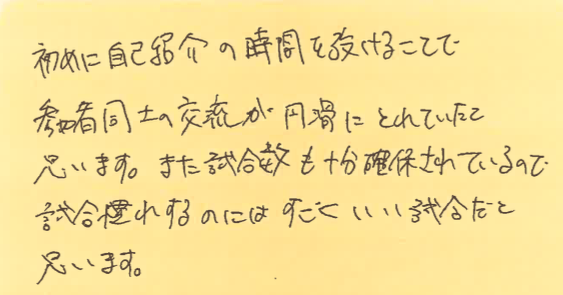 初めに自己紹介の時間を設けることで
参加者同士の交流が円滑にとれていたと
思います。また試合数も十分確保されているので
試合慣れするのにはすごくいい試合だと
思います。